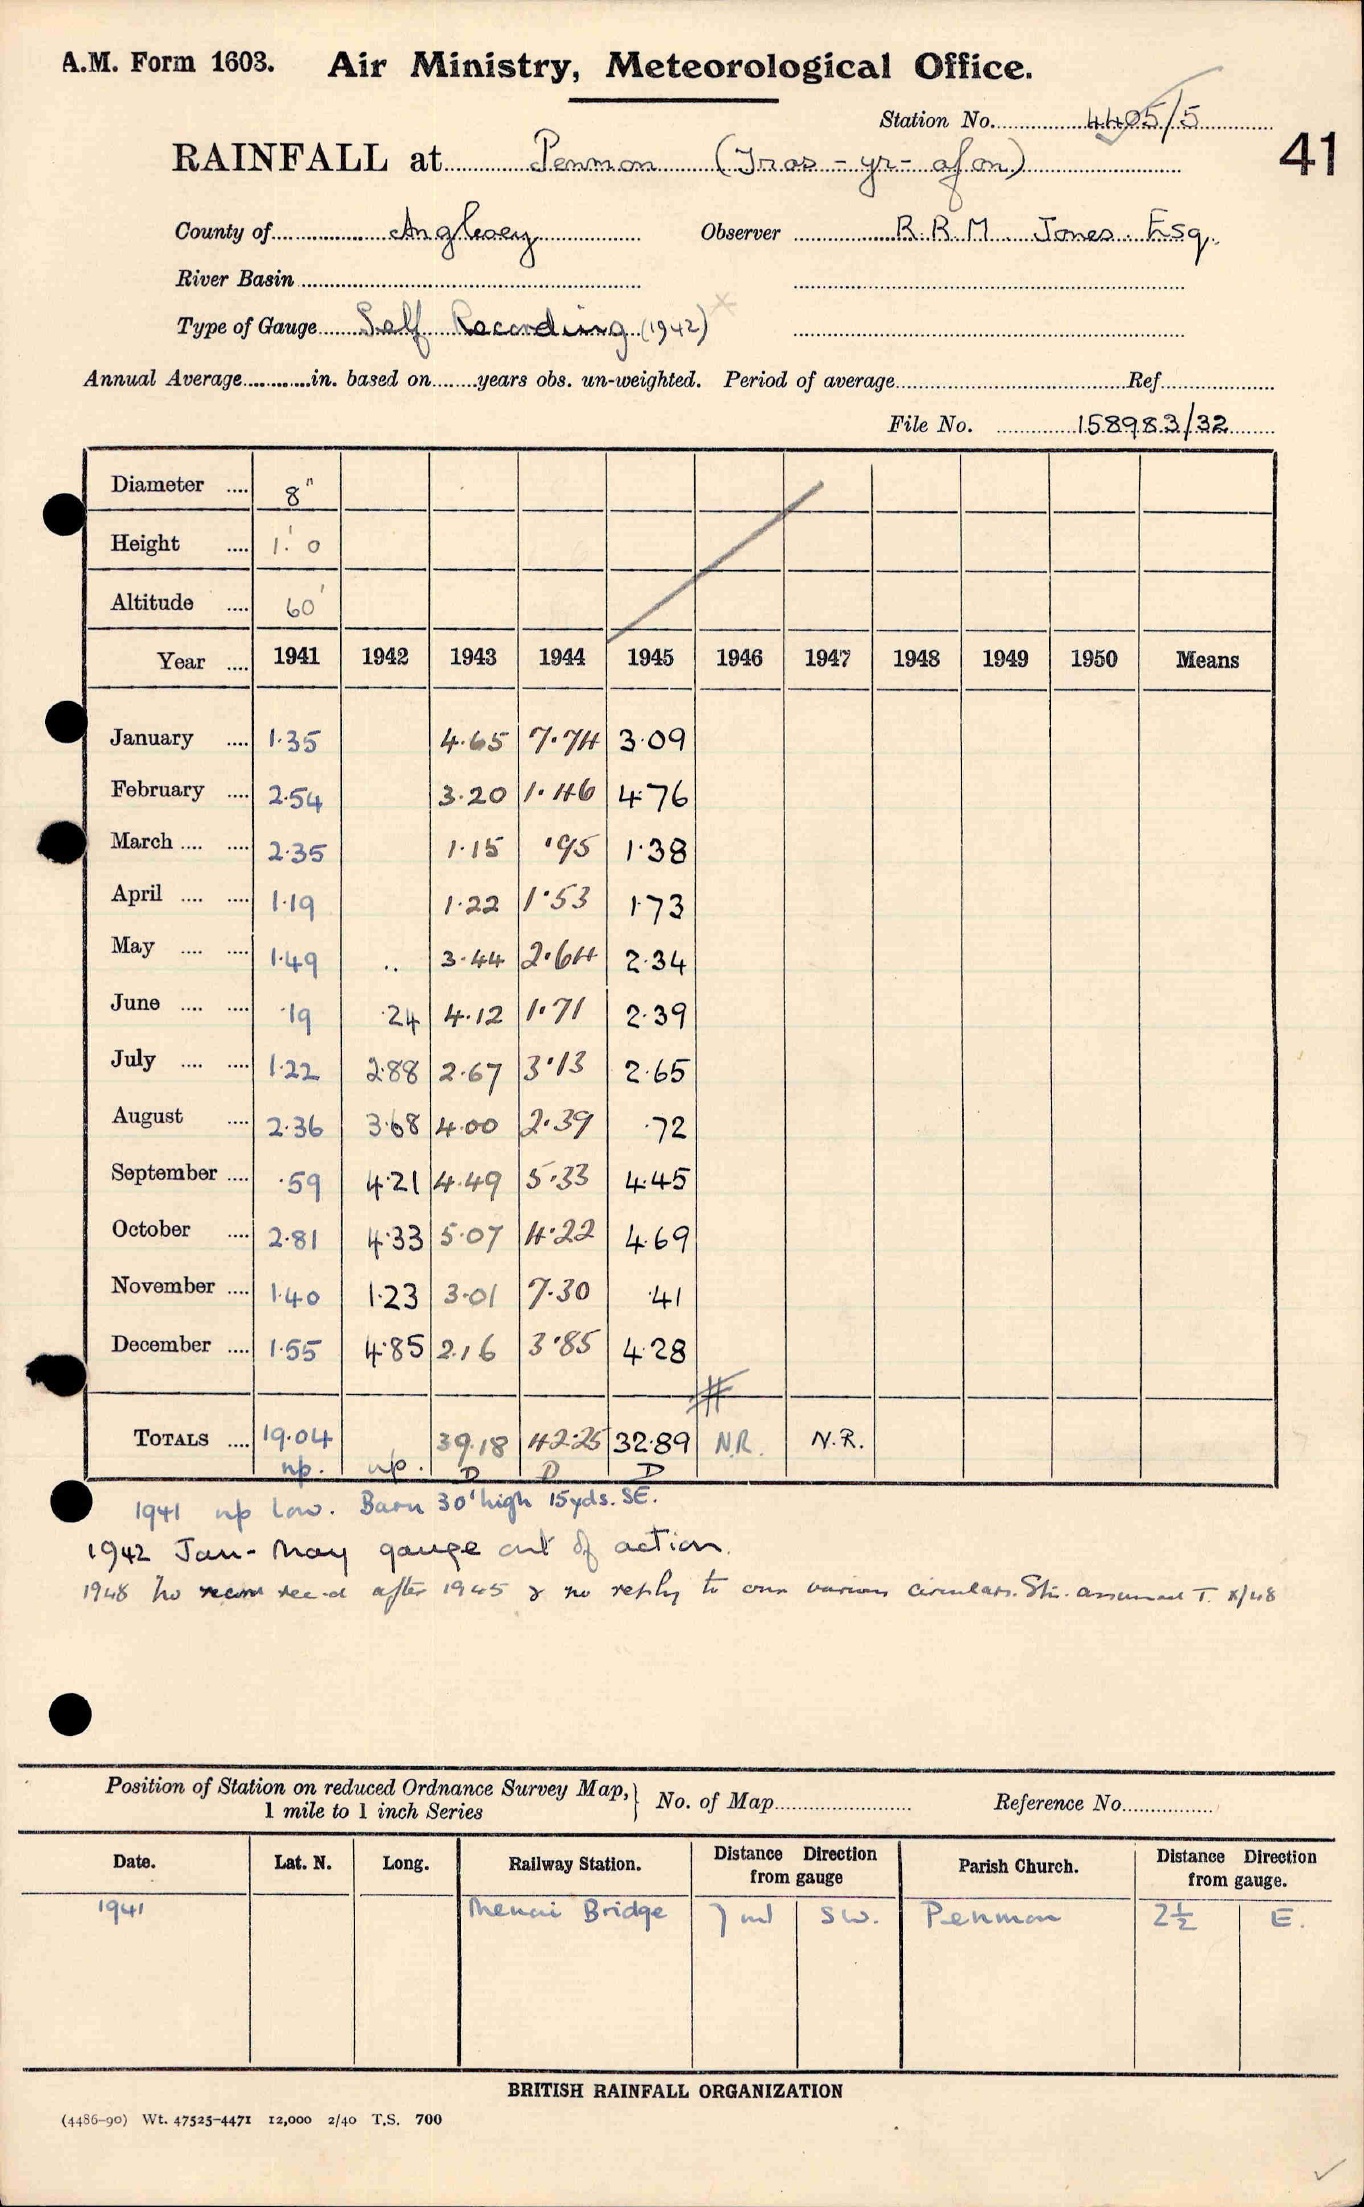 A.M. Form 1603. Air Ministry, Meteorological Office.
Station No. 4405/5
41
RAINFALL at Penmon (Tros-yr-afon)
County of Anglesey Observer R.R.M. Jones. Esq.
River Basin
Type of Gauge Self Recording (1942)
Annual Average in. based on years obs. un-weighted. Period of average Ref.
File No. 158983/32
Diameter 8"
Height 1'.0
Altitude 60'
Year 1941 1942 1943 1944 1945 1946 1947 1948 1949 1950 Means
January 1.35 4.65 7.74 3.09
February 2.54 3.20 1.46 4.76
March 2.35 1.15 .95 1.38
April 1.19 1.22 1.53 1.73
May 1.49 .. 3.44 2.64 2.34
June .19 .24 4.12 1.71 2.39
July 1.22 2.88 2.67 3.13 2.65
August 2.36 3.68 4.00 2.39 .72
September .59 4.21 4.49 5.33 4.45
October 2.81 4.33 5.07 4.22 4.69
November 1.40 1.23 3.01 7.30 .41
December 1.55 4.85 2.16 3.85 4.28
TOTALS 19.04 39.18 42.25 32.89 N.R. N.R.
np. np. D D D
1941 np low. Barn 30' high 15yds. SE.
1942 Jan-May gauge out of action.
1948 No record rec-d after 1945 & no reply to our various circulars. Stn. assumed T. X/48
Position of Station on reduced Ordnance Survey Map, } No. of Map Reference No.
1 mile to 1 inch Series
Date. Lat. N. Long. Railway Station. Distance Direction from gauge Parish Church. Distance Direction from gauge.
1941 Menai Bridge 7 ml SW. Penmon 2½ E.
BRITISH RAINFALL ORGANIZATION
(4486-90) Wt. 47525-4471 12,000 2/40 T.S. 700